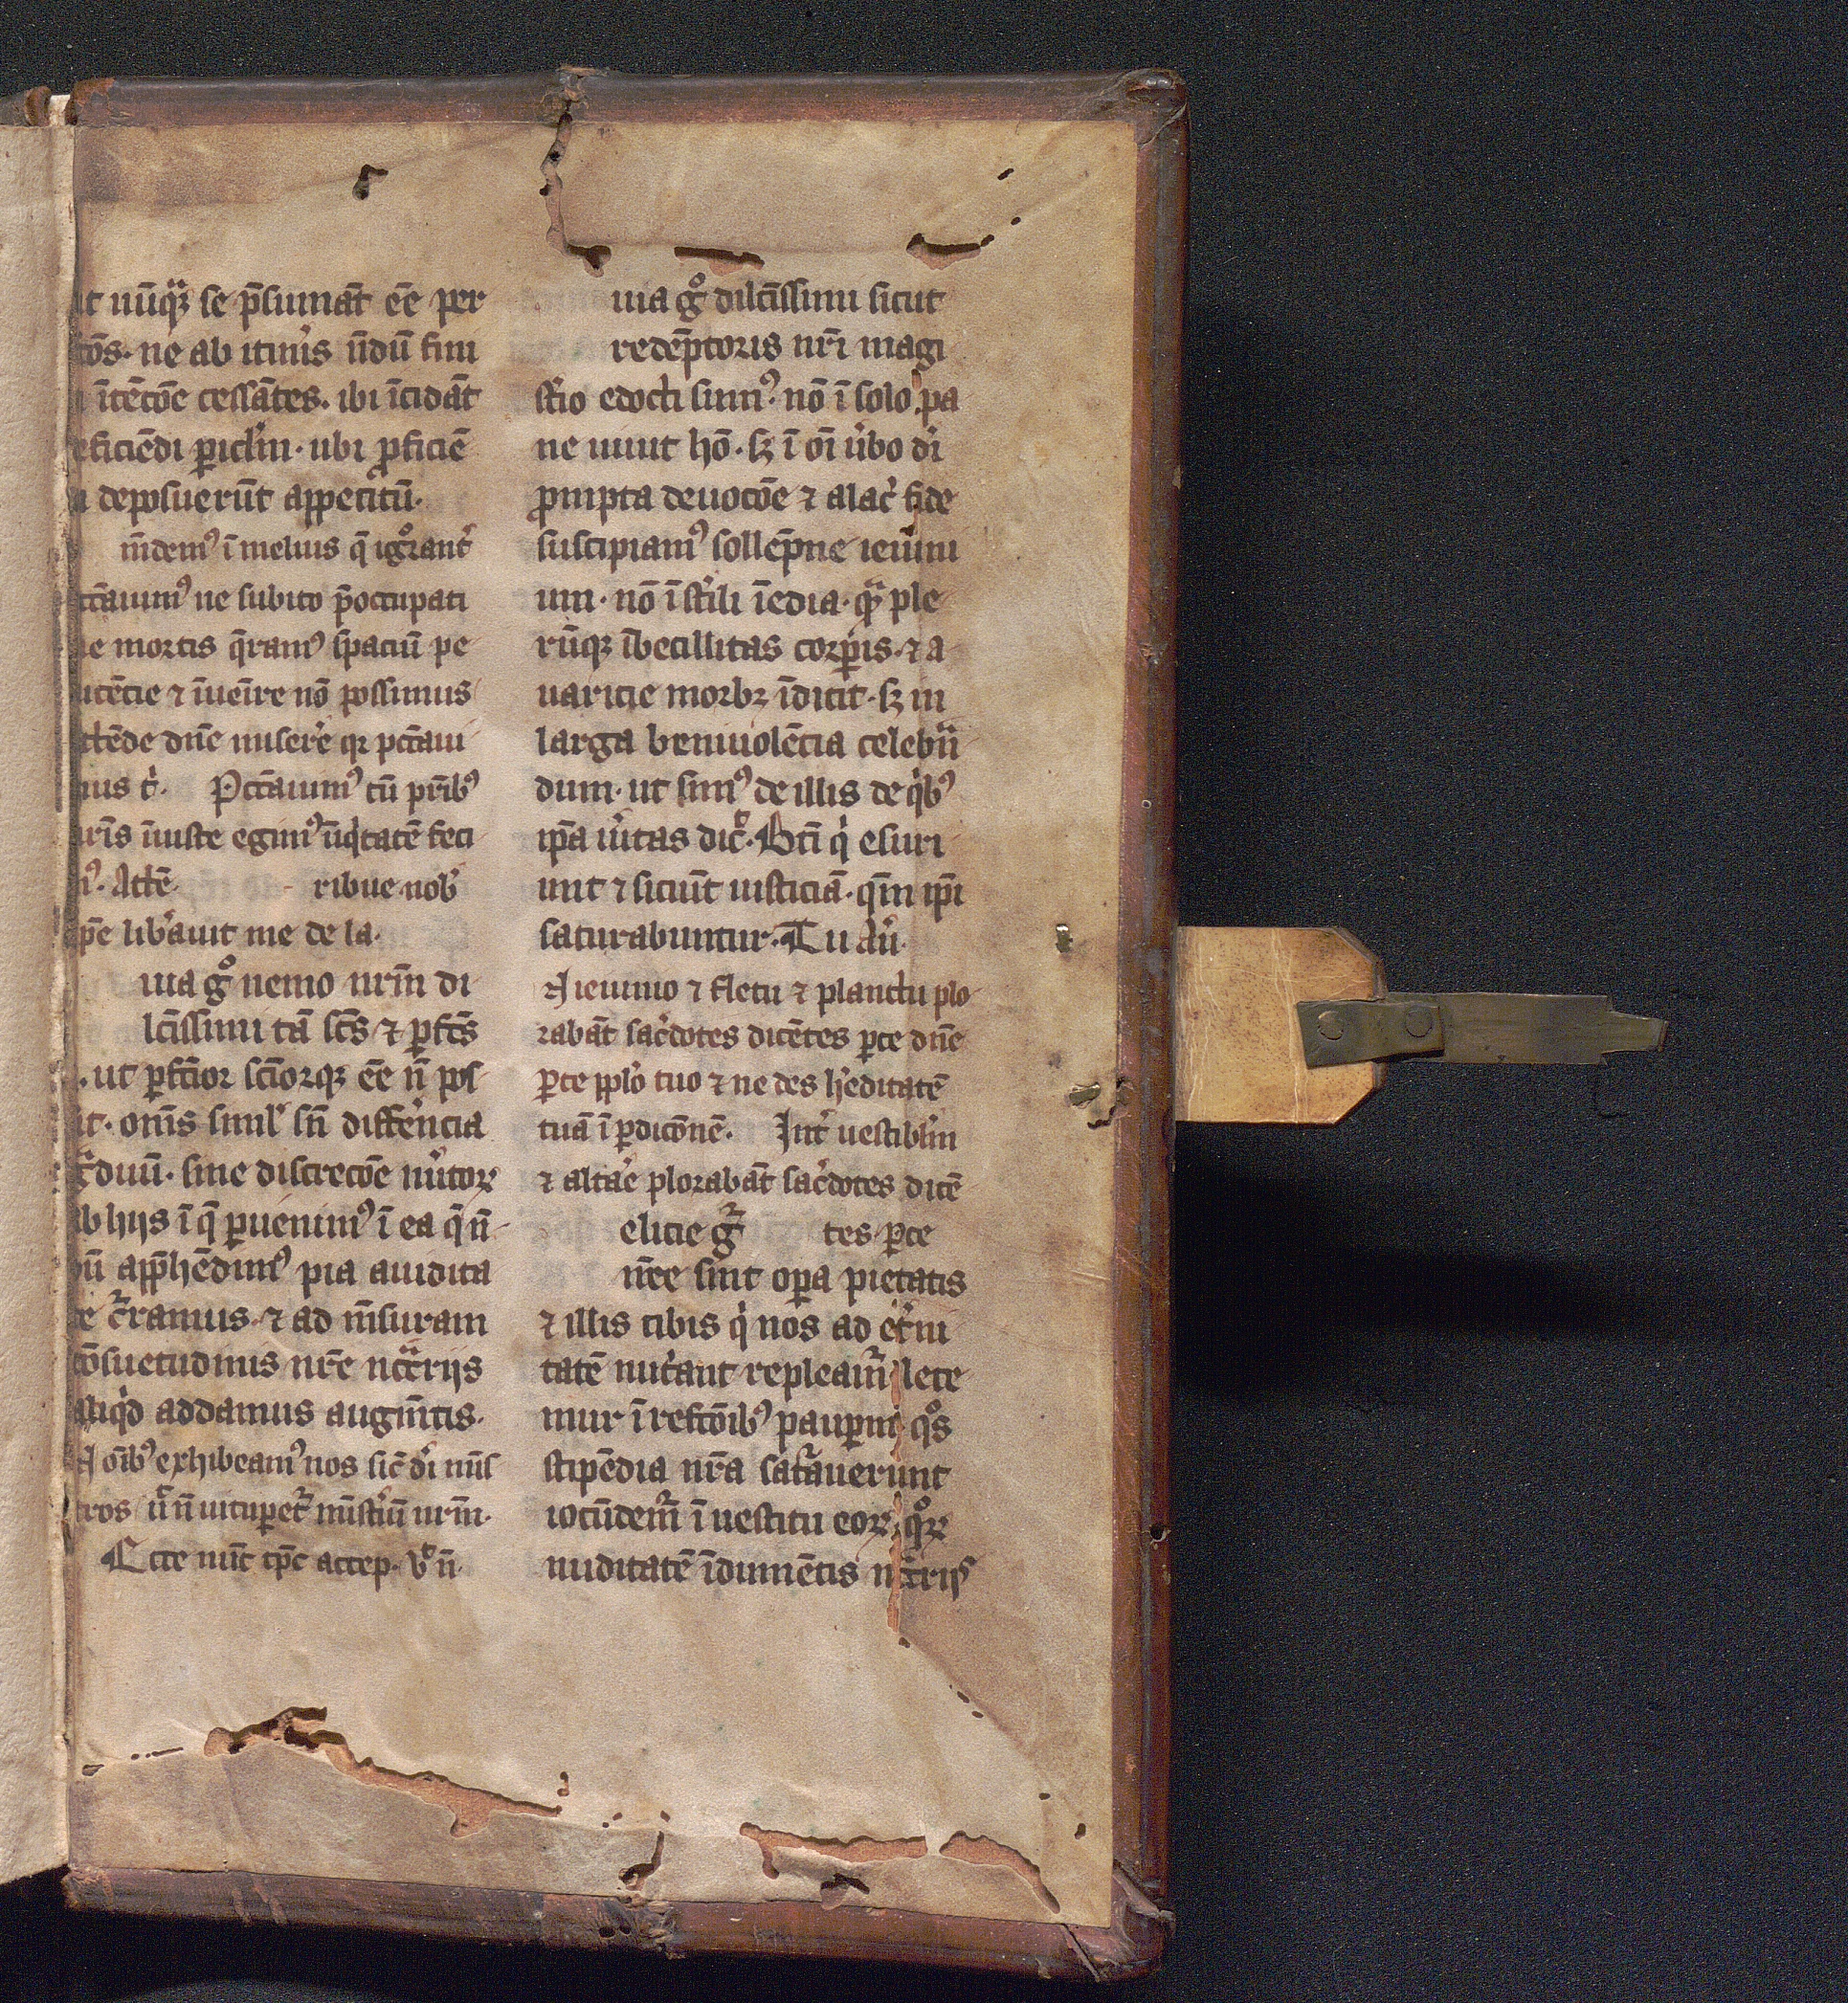 ut nūqꝫ se p̄sumāt eē per
tōs· ne ab itin̾is n̄dū fini
īt̄ētōe cessātes· ibi īcidāt
eficiēdi ꝑicl̄m· ubi ꝓficiē
deposuerūt appetitū·
m̄demꝰ ī melius q̄ ignorant̾
ctāuimꝰ ne subito p̄occupati
ie mortis q̄ramꝰ spaciū pe
itēcie ⁊ īueīre nō possimus
ttēde dn̄e miserē qꝛ pctāui
mus t̾· Pctāuimꝰ cū pr̄ibꝰ
nr̄is īiuste egimꝰ īiq̇tatē feci
mꝰ· Attē ribue nob̾
ip̄e lib̾auit me de la·
uia gͦ nemo nrm̄ di
lct̄issimi tā sc̄s ⁊ ꝑfc̄s
· ut ꝑfct̄ior sct̄iorqꝫ eē n̄ pos
it· om̄s simil̾ sn̄ differ̾ncia
gͣduū· sine discretōe nu̾toꝝ
ab hijs ī q̄ ꝑuenimꝰ ī ea q̄ n̄
dū app̄hēdimꝰ pia auidita
te c̾ramus· ⁊ ad m̄suram
cōsuetudinis nr̄e nccͣrijs
aliq̇d addamus augm̄tis·
In oībꝰ exhibeamꝰ nos sic̄ dī mīs
tros ut̾ n̄ uitupet̾ mīst̾iū nrm̄·
Ecce nūc tp̄c accep· V̾ n̄
uia gͦ dilct̄issimi sicut
redēptoris nr̄i magi
st̾io edocti sumꝰ· nō ī solo pa
ne uiuit hō· sꝫ ī oī u̾bo dī
ꝓmpta deuotōe ⁊ alac̾ fide
suscipiamꝰ sollēpne ieiuni
um· nō ī st̾ili īedia· qͣ ple
rūqꝫ ībecillitas corꝑis· ⁊ a
uaricie morbꝫ īdicit· sꝫ in
larga beniuolēcia celebͣn
dum· ut simꝰ de illis de q̇bꝰ
ip̄a u̾itas dic̾· Bt̄i q̇ esuri
unt ⁊ siciūt iusticiā· qm̄ ip̄i
saturabuntur· Tu au̾·
In ieiunio ⁊ fletu ⁊ planctu plo
rabāt sac̾dotes dicētes ꝑce dn̄e
ꝑce pplo̾ tuo ⁊ ne des h̾editatē
tuā ī ꝑdicōnē· Int̾ uestibl̄m
⁊ altar̾e plorabāt sac̾dotes dicē
elicie gͣ tes ꝑce
nr̄e sint oꝑa pietatis
⁊ illis cibis q̇ nos ad et̾ni
tatē nut̾iant repleamᷣ lete
mur ī refctōibꝰ pauꝑum qͦs
stipēdia nr̄a satͣuerunt
iocūdemᷣ ī uestitu eoꝝ qͦꝝ
nuditatē īdumētis nccͣrijs